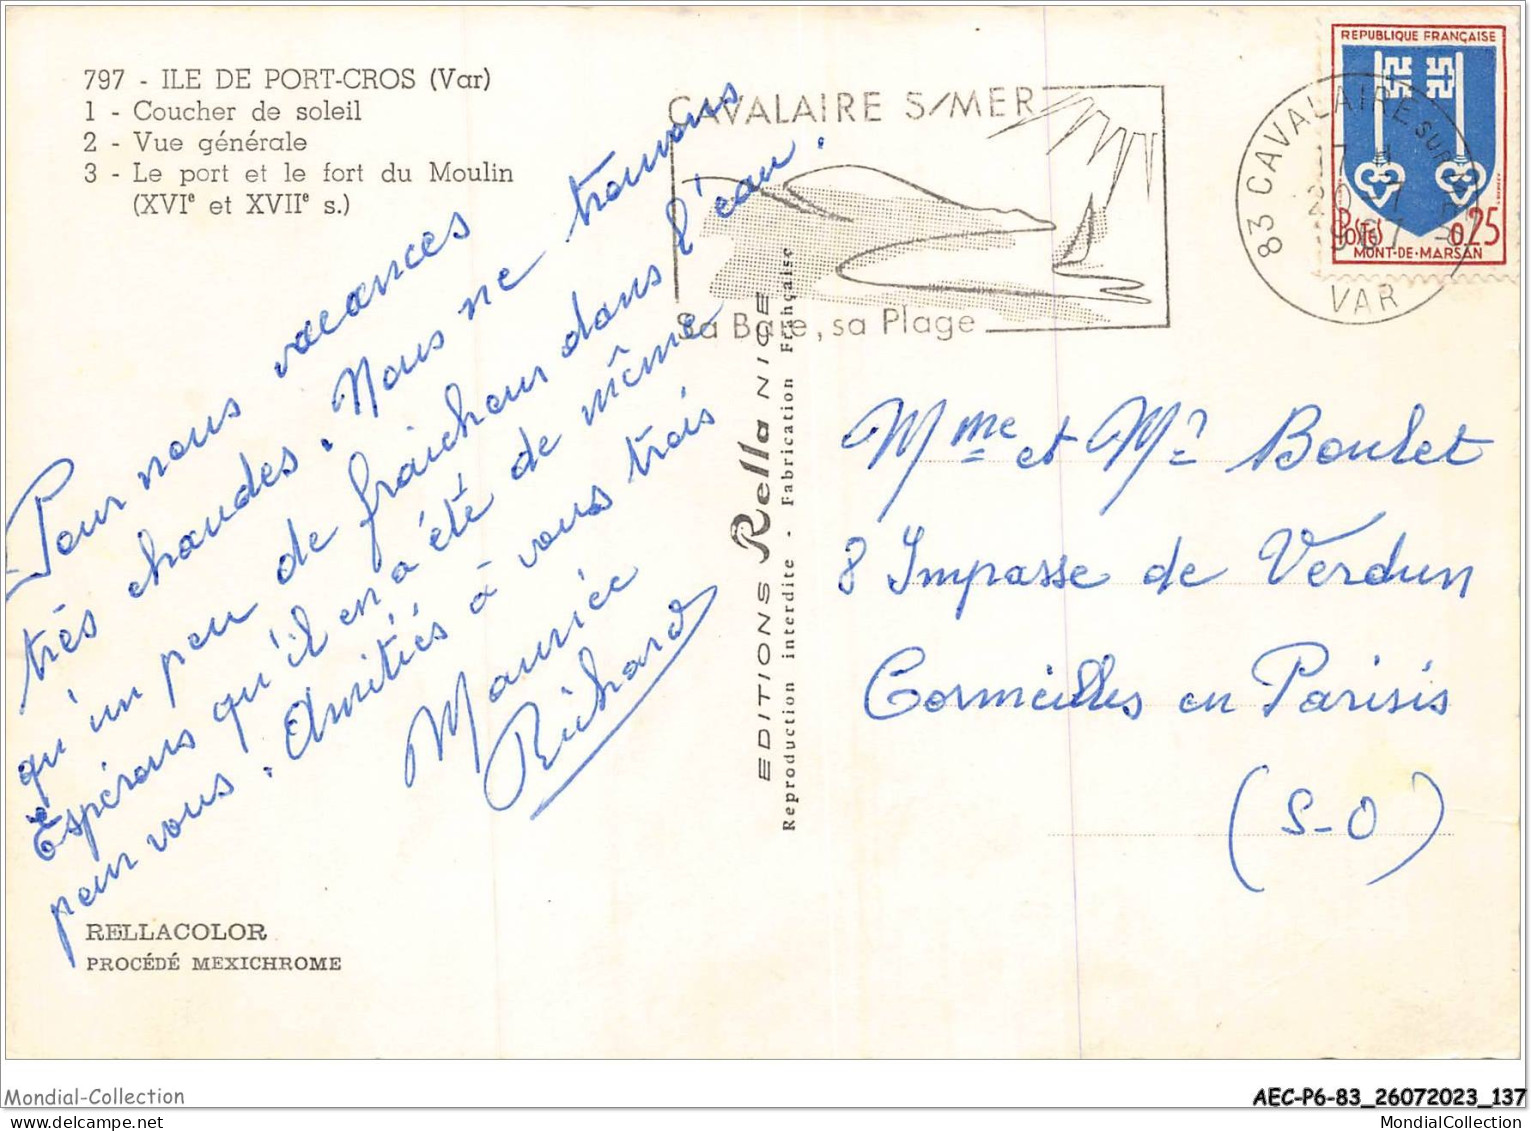 797 - ILE DE PORT-CROS (Var)
1 - Coucher de soleil
2 - Vue générale
3 - Le port et le fort du Moulin
(XVIᵉ et XVIIᵉ s.)
Pour nous vacances
très chaudes. Nous ne trouvons
qu'un peu de fraicheur dans l'eau.
Espérons qu'il en a été de même
pour vous. Amitiés à vous trois
Maurice
Richard
RELLACOLOR
PROCÉDÉ MEXICHROME
EDITIONS Rella NICE
Reproduction interdite - Fabrication Française
CAVALAIRE S/MER
Sa Baie, sa Plage
83 CAVALAIRE SUR MER
17 H
20 - 7
1967
VAR
REPUBLIQUE FRANÇAISE
POSTES 0,25
MONT-DE-MARSAN
Mme et Mr Boulet
8 Impasse de Verdun
Cormeilles en Parisis
(S-O)
Mondial-Collection
AEC-P6-83_26072023_137
MondialCollection